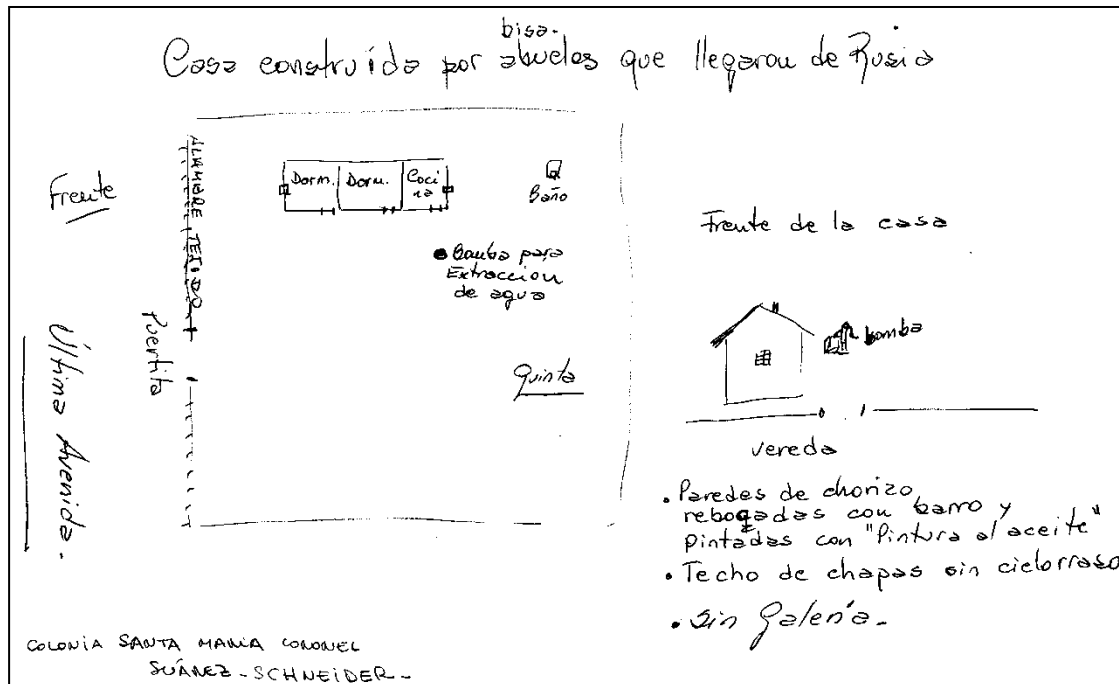 bisa.
Casa construída por abuelos que llegaron de Rusia
Frente
ALAMBRE TEJIDO
Dorm.
Dorm.
Coci
na
Baño
Bomba para
Extraccion
de agua
Puertita
Última Avenida.
Quinta
Frente de la casa
bomba
vereda
• Paredes de chorizo
rebocadas con barro y
pintadas con "Pintura al aceite"
• Techo de chapas sin cielorraso
• Sin Galería -
COLONIA SANTA MARIA CORONEL
SUÁREZ - SCHNEIDER -